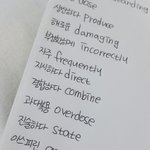 생산하다 produce
해로운 damaging
incorrectly
자주 frequently
지시하다 direct
결합하다 combine
과다복용 overdose
진술하다 state
아스피린